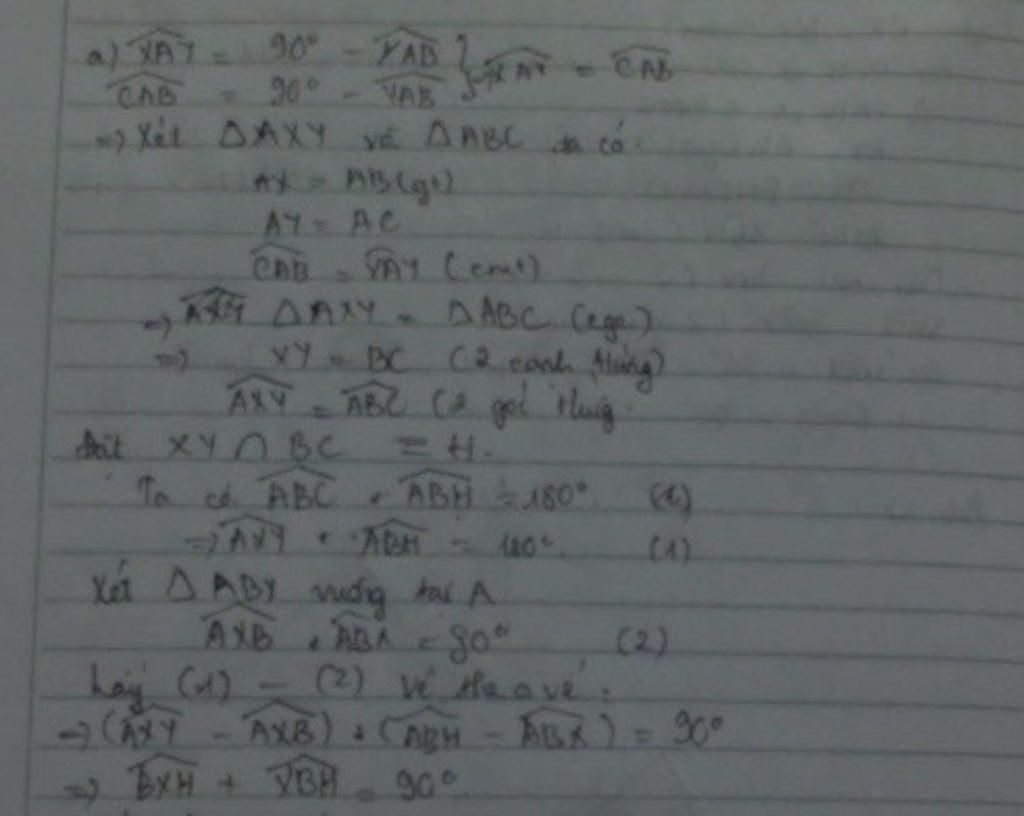 a) XAY = 90° - YAB } XAY = CAB
CAB = 90° - YAB
=> Xét ΔAXY và ΔABC ta có:
AX = AB (gt)
AY = AC
CAB = YAY (cmt)
=> ΔAXY = ΔABC (cgc)
=> XY = BC (2 cạnh tương)
AXY = ABC (2 góc tương
Đặt XY ∩ BC = H.
Ta có ABC + ABH = 180°
=> AXY + ABH = 180° (1)
Xét ΔABX vuông tại A
AXB + ABX = 90° (2)
Lấy (1) - (2) vế theo vế:
=> (AXY - AXB) + (ABH - ABX) = 90°
=> BXH + XBH = 90°